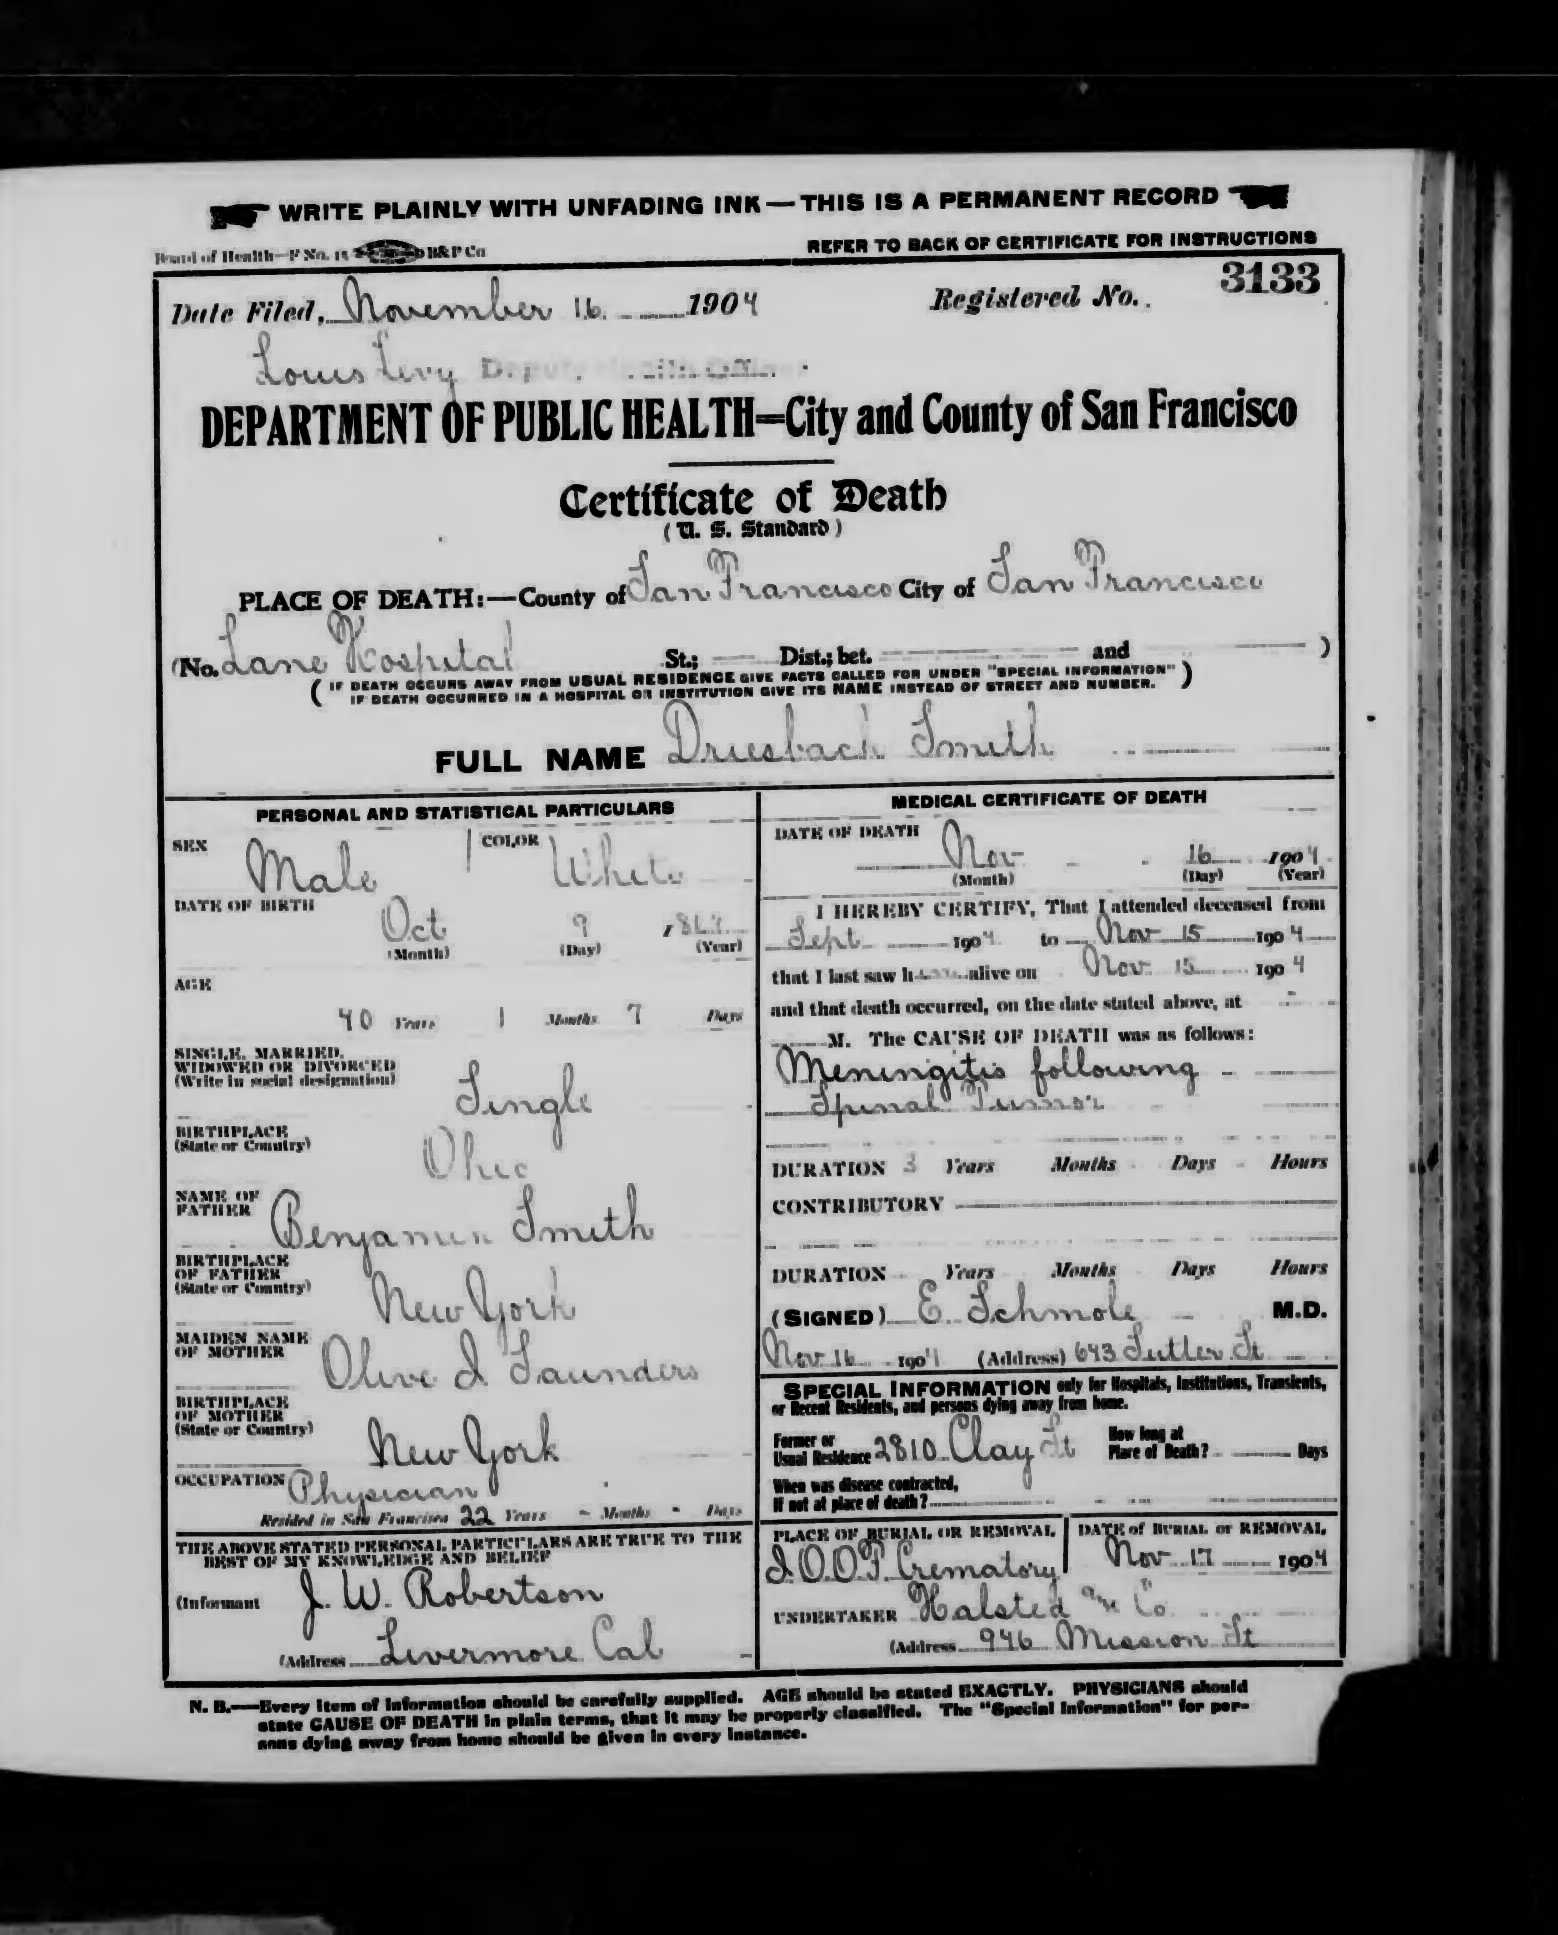 WRITE PLAINLY WITH UNFADING INK — THIS IS A PERMANENT RECORD
Board of Health—F No. 15 B&P Co
REFER TO BACK OF CERTIFICATE FOR INSTRUCTIONS
Date Filed, November 16 1904 Registered No. 3133
Louis Levy Deputy Health Officer
DEPARTMENT OF PUBLIC HEALTH=City and County of San Francisco
Certificate of Death
(U. S. Standard)
PLACE OF DEATH:—County of San Francisco City of San Francisco
(No. Lane Hospital St.; Dist.; bet. and )
( IF DEATH OCCURS AWAY FROM USUAL RESIDENCE GIVE FACTS CALLED FOR UNDER "SPECIAL INFORMATION" )
IF DEATH OCCURRED IN A HOSPITAL OR INSTITUTION GIVE ITS NAME INSTEAD OF STREET AND NUMBER.
FULL NAME Driesbach Smith
PERSONAL AND STATISTICAL PARTICULARS
SEX Male COLOR White
DATE OF BIRTH
Oct 9
(Month) (Day) (Year)
AGE
40 Years 1 Months 7 Days
SINGLE, MARRIED,
WIDOWED OR DIVORCED
(Write in social designation) Single
BIRTHPLACE
(State or Country) Ohio
NAME OF
FATHER Benjamin Smith
BIRTHPLACE
OF FATHER
(State or Country) New York
MAIDEN NAME
OF MOTHER Olive I Saunders
BIRTHPLACE
OF MOTHER
(State or Country) New York
OCCUPATION Physician
Resided in San Francisco 22 Years - Months - Days
THE ABOVE STATED PERSONAL PARTICULARS ARE TRUE TO THE
BEST OF MY KNOWLEDGE AND BELIEF
(Informant J. W. Robertson
(Address Livermore Cal
MEDICAL CERTIFICATE OF DEATH
DATE OF DEATH
Nov 16 1904
(Month) (Day) (Year)
I HEREBY CERTIFY, That I attended deceased from
Sept 1904 to Nov 15 1904
that I last saw him alive on Nov 15 1904
and that death occurred, on the date stated above, at
M. The CAUSE OF DEATH was as follows:
Meningitis following
Spinal Tumor
DURATION 3 Years Months Days Hours
CONTRIBUTORY
DURATION Years Months Days Hours
(SIGNED) E. Schmole M.D.
Nov 16 1904 (Address) 643 Sutter St
SPECIAL INFORMATION only for Hospitals, Institutions, Transients,
or Recent Residents, and persons dying away from home.
Former or
Usual Residence 2810 Clay St
How long at
Place of Death? Days
When was disease contracted,
If not at place of death?
PLACE OF BURIAL OR REMOVAL
I.O.O.F. Crematory
DATE of BURIAL or REMOVAL
Nov 17 1904
UNDERTAKER Halsted and Co
(Address 946 Mission St
N. B.—Every item of information should be carefully supplied. AGE should be stated EXACTLY. PHYSICIANS should
state CAUSE OF DEATH in plain terms, that it may be properly classified. The "Special Information" for per-
sons dying away from home should be given in every instance.